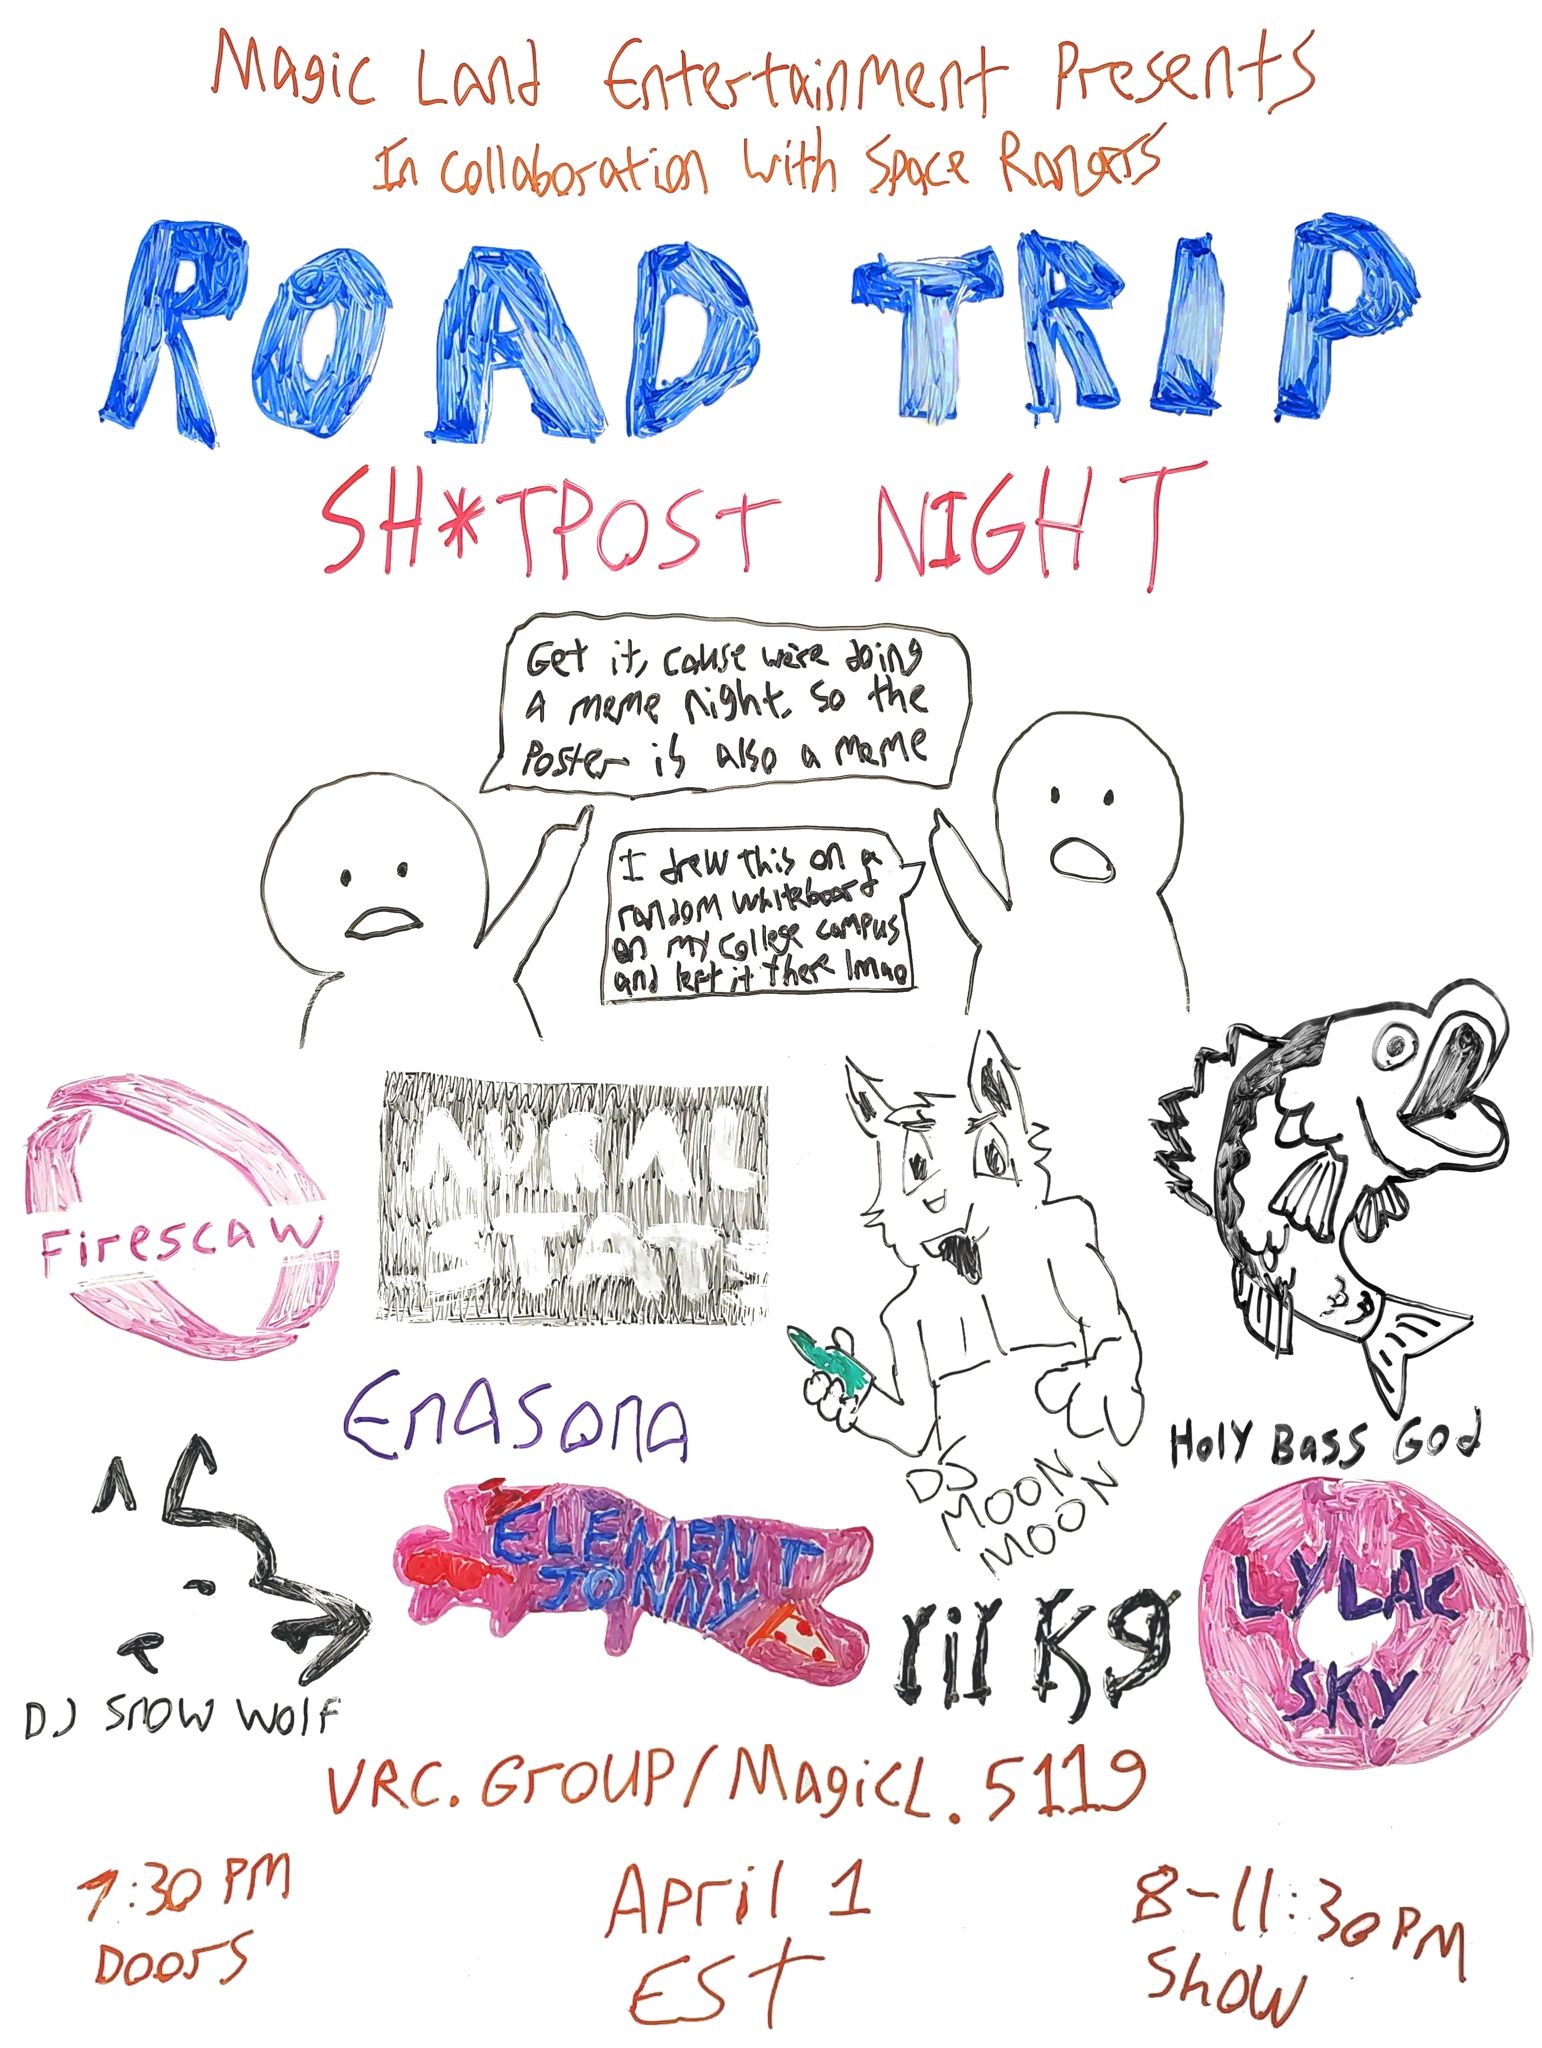 Magic Land Entertainment Presents
In Collaboration with Space Rangers
ROAD TRIP
SH*TPOST NIGHT
Get it, cause we're doing
A meme night, so the
Poster is also a meme
I drew this on a
random whiteboard
on my college campus
and left it there lmao
Firescaw
AURAL
STATE
EnASonA
DJ
MOON
MOON
Holy Bass God
DJ Snow Wolf
ELEMENT
JONNY
lil K9
LYLAC
SKY
VRC.GrOUP/MagicL.5119
7:30 PM
Doors
April 1
EST
8-11:30PM
Show